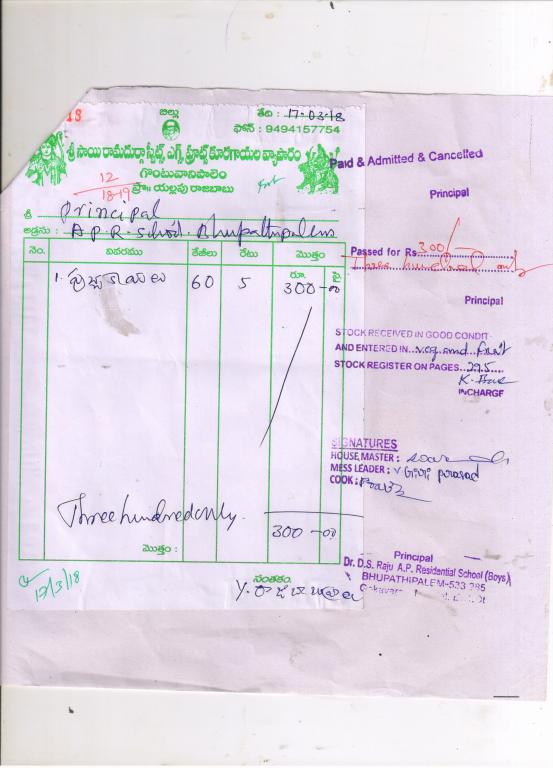 18
బిల్లు
తేది : 17-03-18
ఫోన్ : 9494157754
శ్రీ సాయి రామదుర్గా స్వీట్స్ ఎగ్స్ ఫ్రూట్స్ కూరగాయల వ్యాపారం
గొంటువానిపాలెం
12
18-19
ప్రొః యల్లపు రాజబాబు
శ్రీ Principal
అడ్రసు : A.P.R. School. Bhupathipalem
నెం. వివరము కేజీలు రేటు మొత్తం
రూ. పై
1. 60 5 300-00
Three hundred only.
300-00
మొత్తం :
17/3/18
సంతకం.
Y. రాజబాబు
Paid & Admitted & Cancelled
Principal
Passed for Rs 300/-
Three hundred only
Principal
STOCK RECEIVED IN GOOD CONDIT
AND ENTERED IN veg and fruit
STOCK REGISTER ON PAGES 225
INCHARGE
SIGNATURES
HOUSE MASTER :
MESS LEADER : v Giri prasad
COOK :
Principal
Dr. D.S. Raju A.P. Residential School (Boys)
BHUPATHIPALEM-533 285